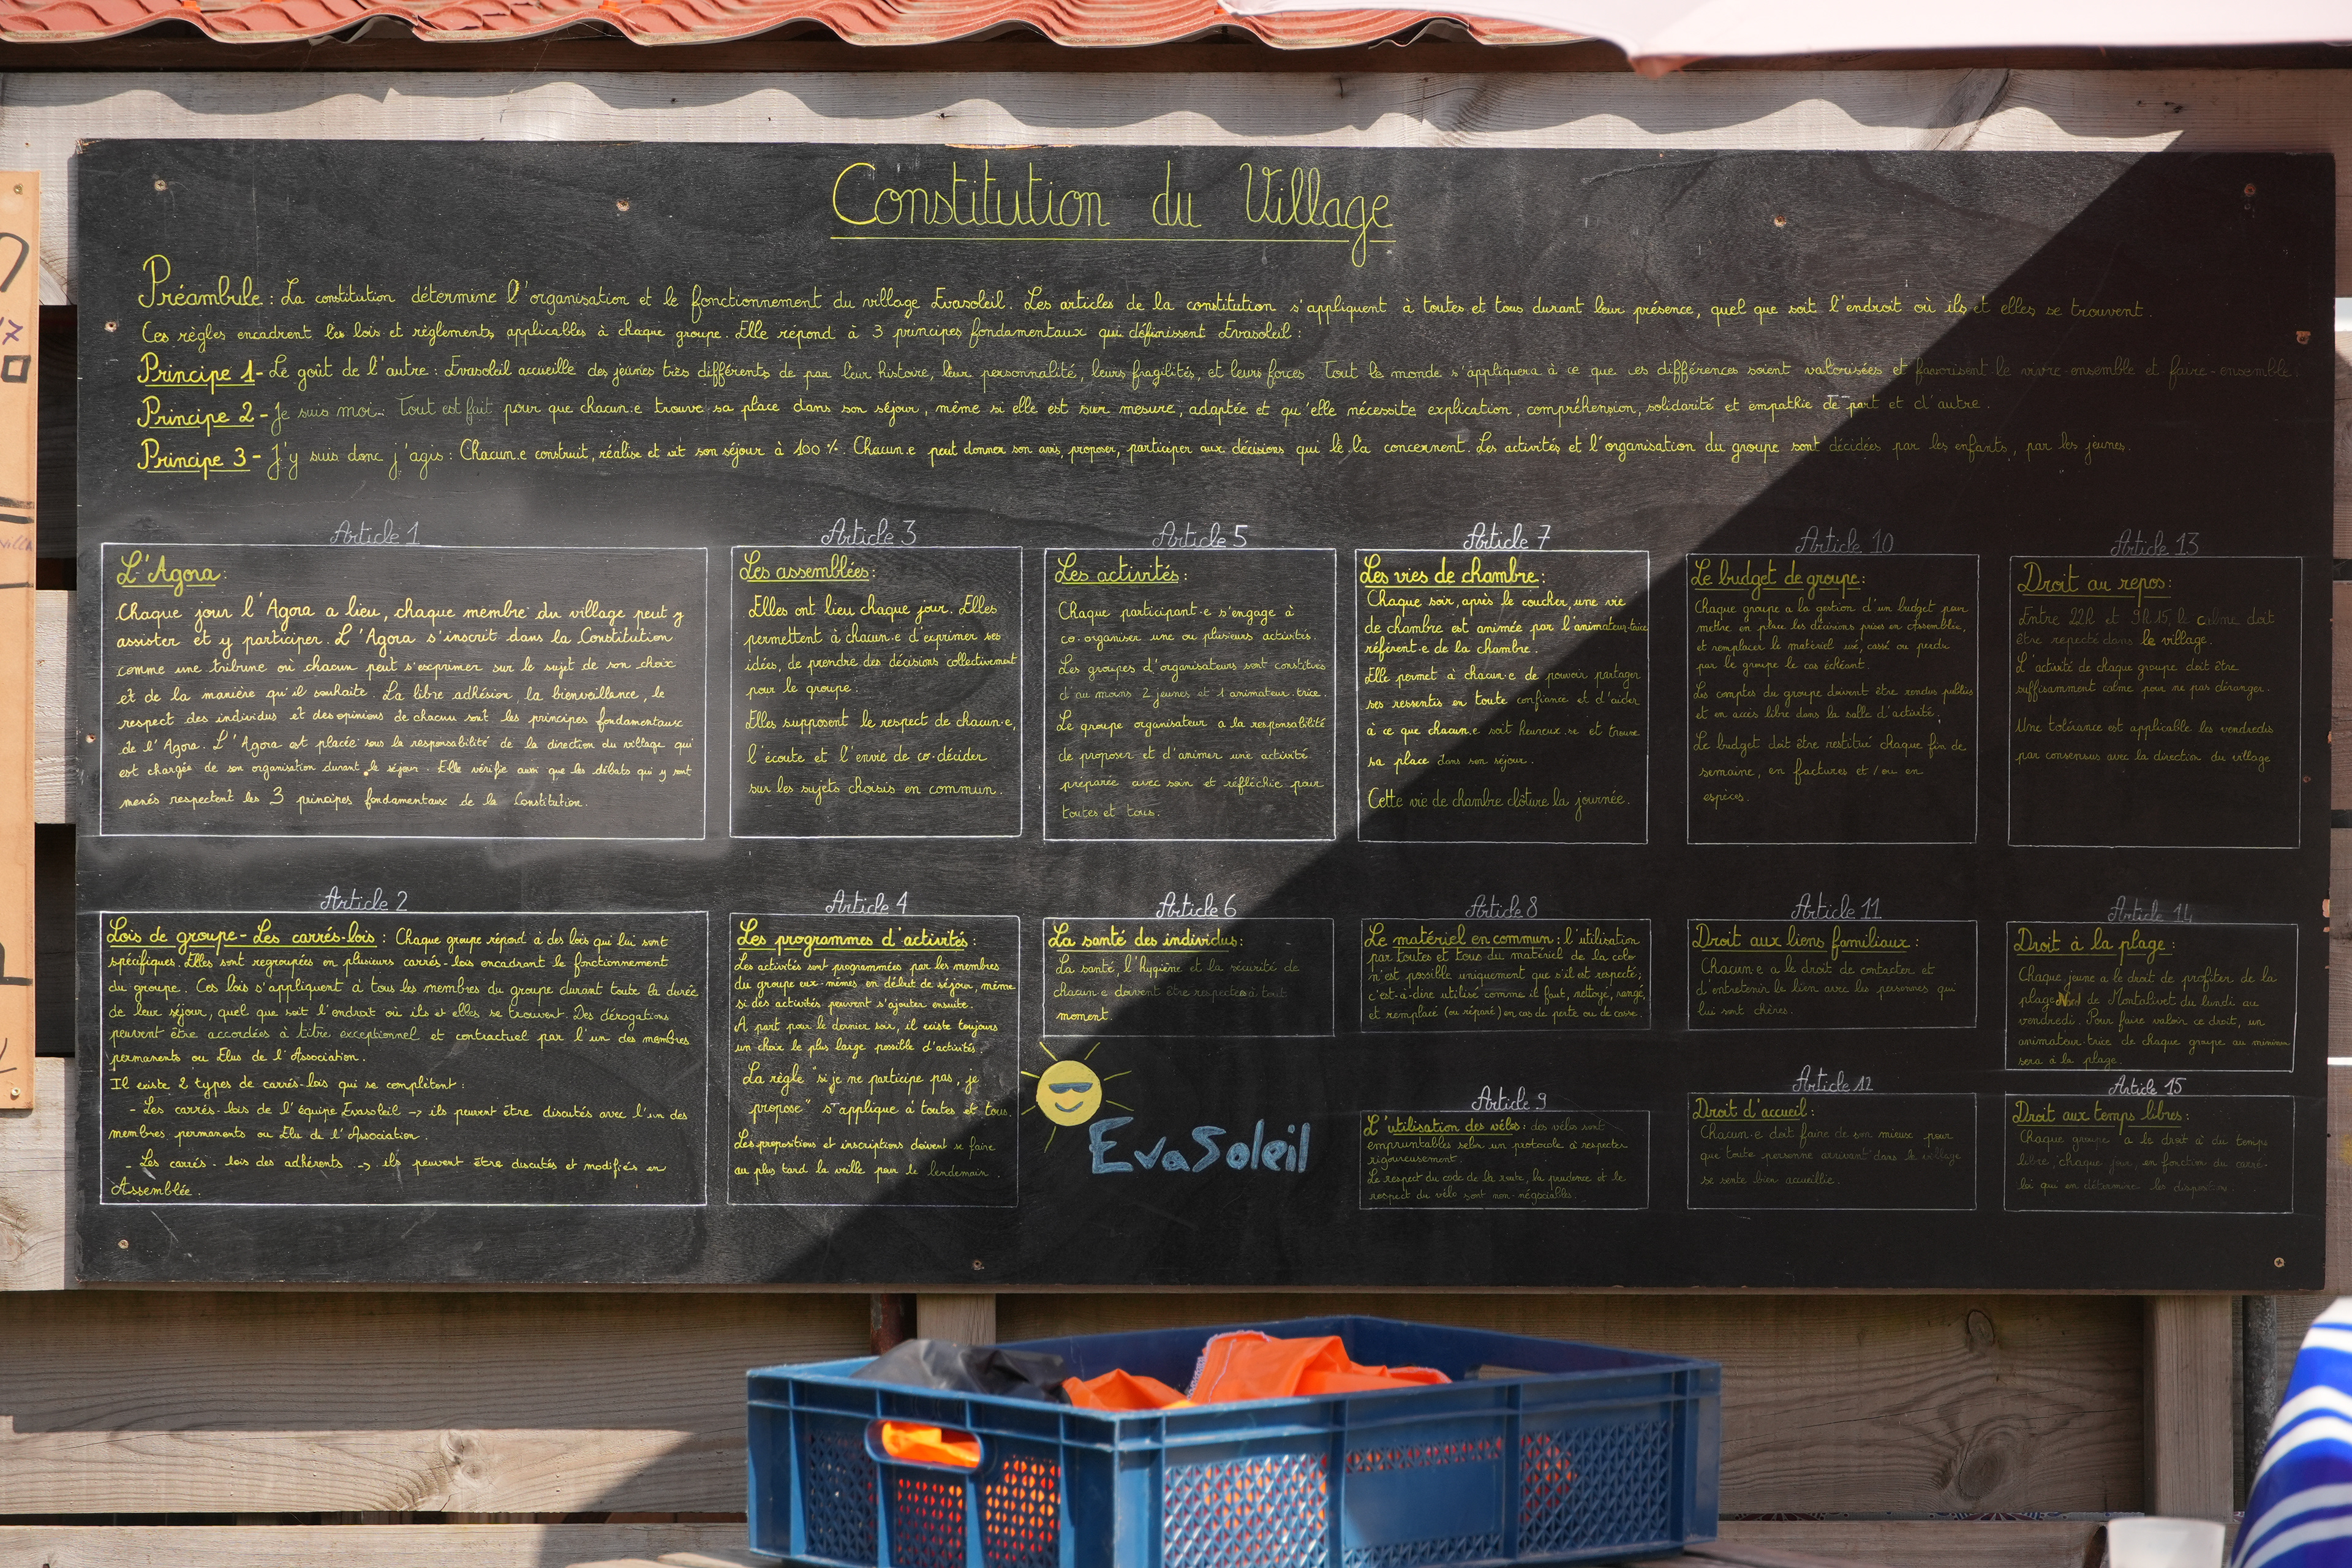 Constitution du Village
Préambule : La constitution détermine l'organisation et le fonctionnement du village Evasoleil. Les articles de la constitution s'appliquent à toutes et tous durant leur présence, quel que soit l'endroit où ils et elles se trouvent.
Ces règles encadrent les lois et règlements applicables à chaque groupe. Elle répond à 3 principes fondamentaux qui définissent Evasoleil :
Principe 1- Le goût de l'autre : Evasoleil accueille des jeunes très différents de par leur histoire, leur personnalité, leurs fragilités, et leurs forces. Tout le monde s'appliquera à ce que ces différences soient valorisées et favorisent le vivre-ensemble et faire-ensemble.
Principe 2 - Je suis moi. Tout est fait pour que chacun.e trouve sa place dans son séjour, même si elle est sur mesure, adaptée et qu'elle nécessite explication, compréhension, solidarité et empathie de part et d'autre.
Principe 3 - J'y suis donc j'agis : Chacun.e construit, réalise et vit son séjour à 100 %. Chacun.e peut donner son avis, proposer, participer aux décisions qui le.la concernent. Les activités et l'organisation du groupe sont décidées par les enfants, par les jeunes.
Article 1
L'Agora :
Chaque jour l'Agora a lieu, chaque membre du village peut y
assister et y participer. L'Agora s'inscrit dans la Constitution
comme une tribune où chacun peut s'exprimer sur le sujet de son choix
et de la manière qu'il souhaite. La libre adhésion, la bienveillance, le
respect des individus et des opinions de chacun sont les principes fondamentaux
de l'Agora. L'Agora est placée sous la responsabilité de la direction du village qui
est chargée de son organisation durant le séjour. Elle vérifie aussi que les débats qui y sont
menés respectent les 3 principes fondamentaux de la Constitution.
Article 2
Lois de groupe - Les carrés-lois : Chaque groupe répond à des lois qui lui sont
spécifiques. Elles sont regroupées en plusieurs carrés-lois encadrant le fonctionnement
du groupe. Ces lois s'appliquent à tous les membres du groupe durant toute la durée
de leur séjour, quel que soit l'endroit où ils et elles se trouvent. Des dérogations
peuvent être accordées à titre exceptionnel et contractuel par l'un des membres
permanents ou Elus de l'Association.
Il existe 2 types de carrés-lois qui se complètent :
- Les carrés-lois de l'équipe Evasoleil -> ils peuvent être discutés avec l'un des
membres permanents ou Elu de l'Association.
- Les carrés-lois des adhérents -> ils peuvent être discutés et modifiés en
Assemblée.
Article 3
Les assemblées :
Elles ont lieu chaque jour. Elles
permettent à chacun.e d'exprimer ses
idées, de prendre des décisions collectivement
pour le groupe.
Elles supposent le respect de chacun.e,
l'écoute et l'envie de co-décider
sur les sujets choisis en commun.
Article 4
Les programmes d'activités :
Les activités sont programmées par les membres
du groupe eux-mêmes en début de séjour, même
si des activités peuvent s'ajouter ensuite.
A part pour le dernier soir, il existe toujours
un choix le plus large possible d'activités.
La règle "si je ne participe pas, je
propose" s'applique à toutes et tous.
Les propositions et inscriptions doivent se faire
au plus tard la veille pour le lendemain.
Article 5
Les activités :
Chaque participant.e s'engage à
co-organiser une ou plusieurs activités.
Les groupes d'organisateurs sont constitués
d'au moins 2 jeunes et 1 animateur.trice.
Le groupe organisateur a la responsabilité
de proposer et d'animer une activité
préparée avec soin et réfléchie pour
toutes et tous.
Article 6
La santé des individus :
La santé, l'hygiène et la sécurité de
chacun.e doivent être respectées à tout
moment.
EvaSoleil
Article 7
Les vies de chambre :
Chaque soir, après le coucher, une vie
de chambre est animée par l'animateur.trice
référent.e de la chambre.
Elle permet à chacun.e de pouvoir partager
ses ressentis en toute confiance et d'aider
à ce que chacun.e soit heureux.se et trouve
sa place dans son séjour.
Cette vie de chambre clôture la journée.
Article 8
Le matériel en commun : l'utilisation
par toutes et tous du matériel de la colo
n'est possible uniquement que s'il est respecté,
c'est-à-dire utilisé comme il faut, nettoyé, rangé,
et remplacé (ou réparé) en cas de perte ou de casse.
Article 9
L'utilisation des vélos : des vélos sont
empruntables selon un protocole à respecter
rigoureusement.
Le respect du code de la route, la prudence et le
respect du vélo sont non-négociables.
Article 10
Le budget de groupe :
Chaque groupe a la gestion d'un budget pour
mettre en place les décisions prises en Assemblée,
et remplacer le matériel usé, cassé ou perdu
par le groupe le cas échéant.
Les comptes du groupe doivent être rendus publics
et en accès libre dans la salle d'activité.
Le budget doit être restitué chaque fin de
semaine, en factures et/ou en
espèces.
Article 11
Droit aux liens familiaux :
Chacun.e a le droit de contacter et
d'entretenir le lien avec les personnes qui
lui sont chères.
Article 12
Droit d'accueil :
Chacun.e doit faire de son mieux pour
que toute personne arrivant dans le village
se sente bien accueillie.
Article 13
Droit au repos :
Entre 22h et 9h15, le calme doit
être repecté dans le village.
L'activité de chaque groupe doit être
suffisamment calme pour ne pas déranger.
Une tolérance est applicable les vendredis
par consensus avec la direction du village
Article 14
Droit à la plage :
Chaque jeune a le droit de profiter de la
plage Nord de Montalivet du lundi au
vendredi. Pour faire valoir ce droit, un
animateur.trice de chaque groupe au minimum
sera à la plage.
Article 15
Droit aux temps libres :
Chaque groupe a le droit à du temps
libre, chaque jour, en fonction du carré-
loi qui en détermine les